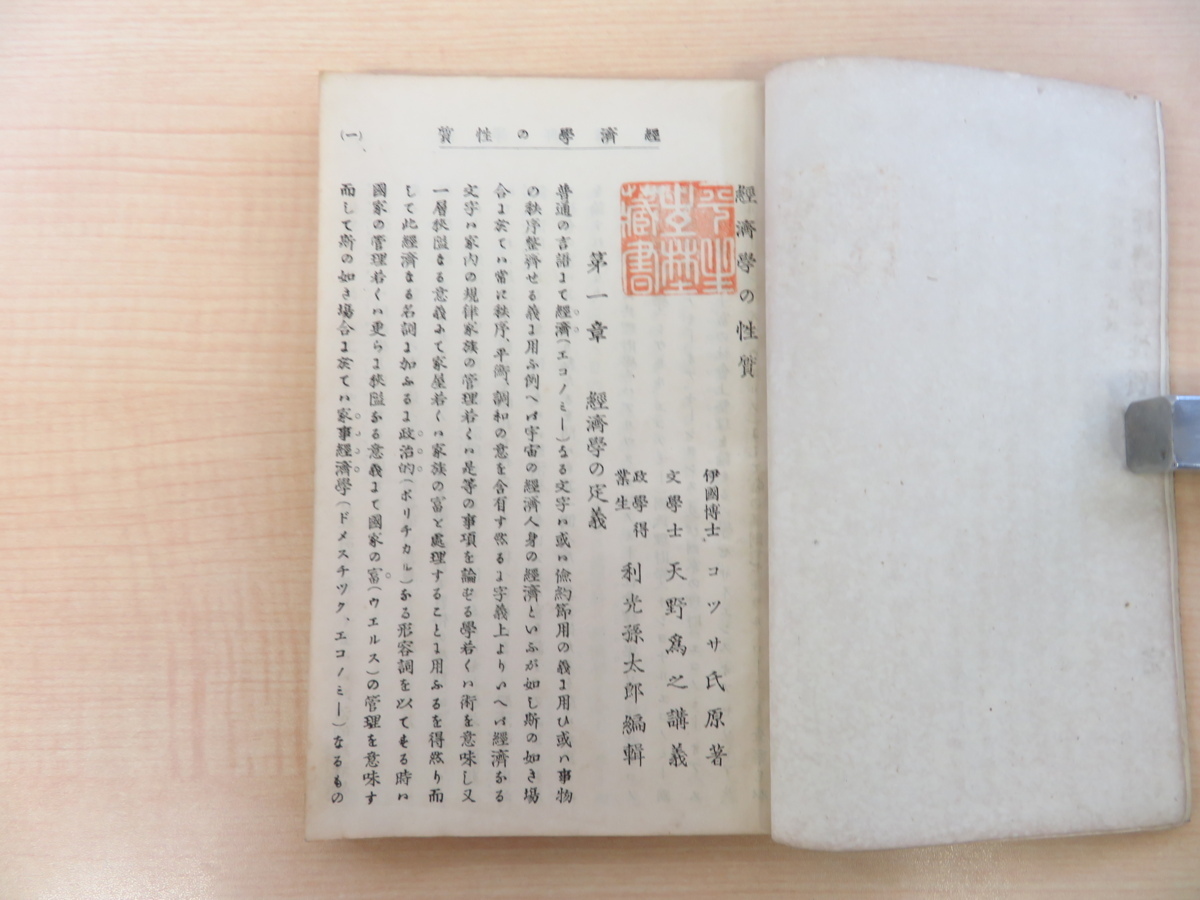 經濟學の性質
(一)
經濟學の性質
伊國博士 コツサ氏原著
文學士 天野爲之講義
政學得業生 利光孫太郎編輯
藏書
第一章 經濟學の定義
普通の言語よて經濟(エコノミー)なる文字ハ或ハ儉約節用の義よ用ひ或ハ事物
の秩序整齊せる義よ用ふ例へは宇宙の經濟人身の經濟といふが如し斯の如き塲
合よ於てハ常に秩序、平衡、調和の意を含有す然るよ字義上よりいへは經濟なる
文字ハ家内の規律家族の管理若くハ是等の事項を論ずる學若くハ術を意味し又
一層狹隘なる意義にて家屋若くハ家族の富を處理することよ用ふるを得然り而
して此經濟なる名詞よ加ふるよ政治的(ポリチカル)なる形容詞を以てする時ハ
國家の管理若くハ更らよ狹隘なる意義よて國家の富(ウエルス)の管理を意味す
而して斯の如き塲合よ於てハ家事經濟學(ドメスチツク、エコノミー)なるもの